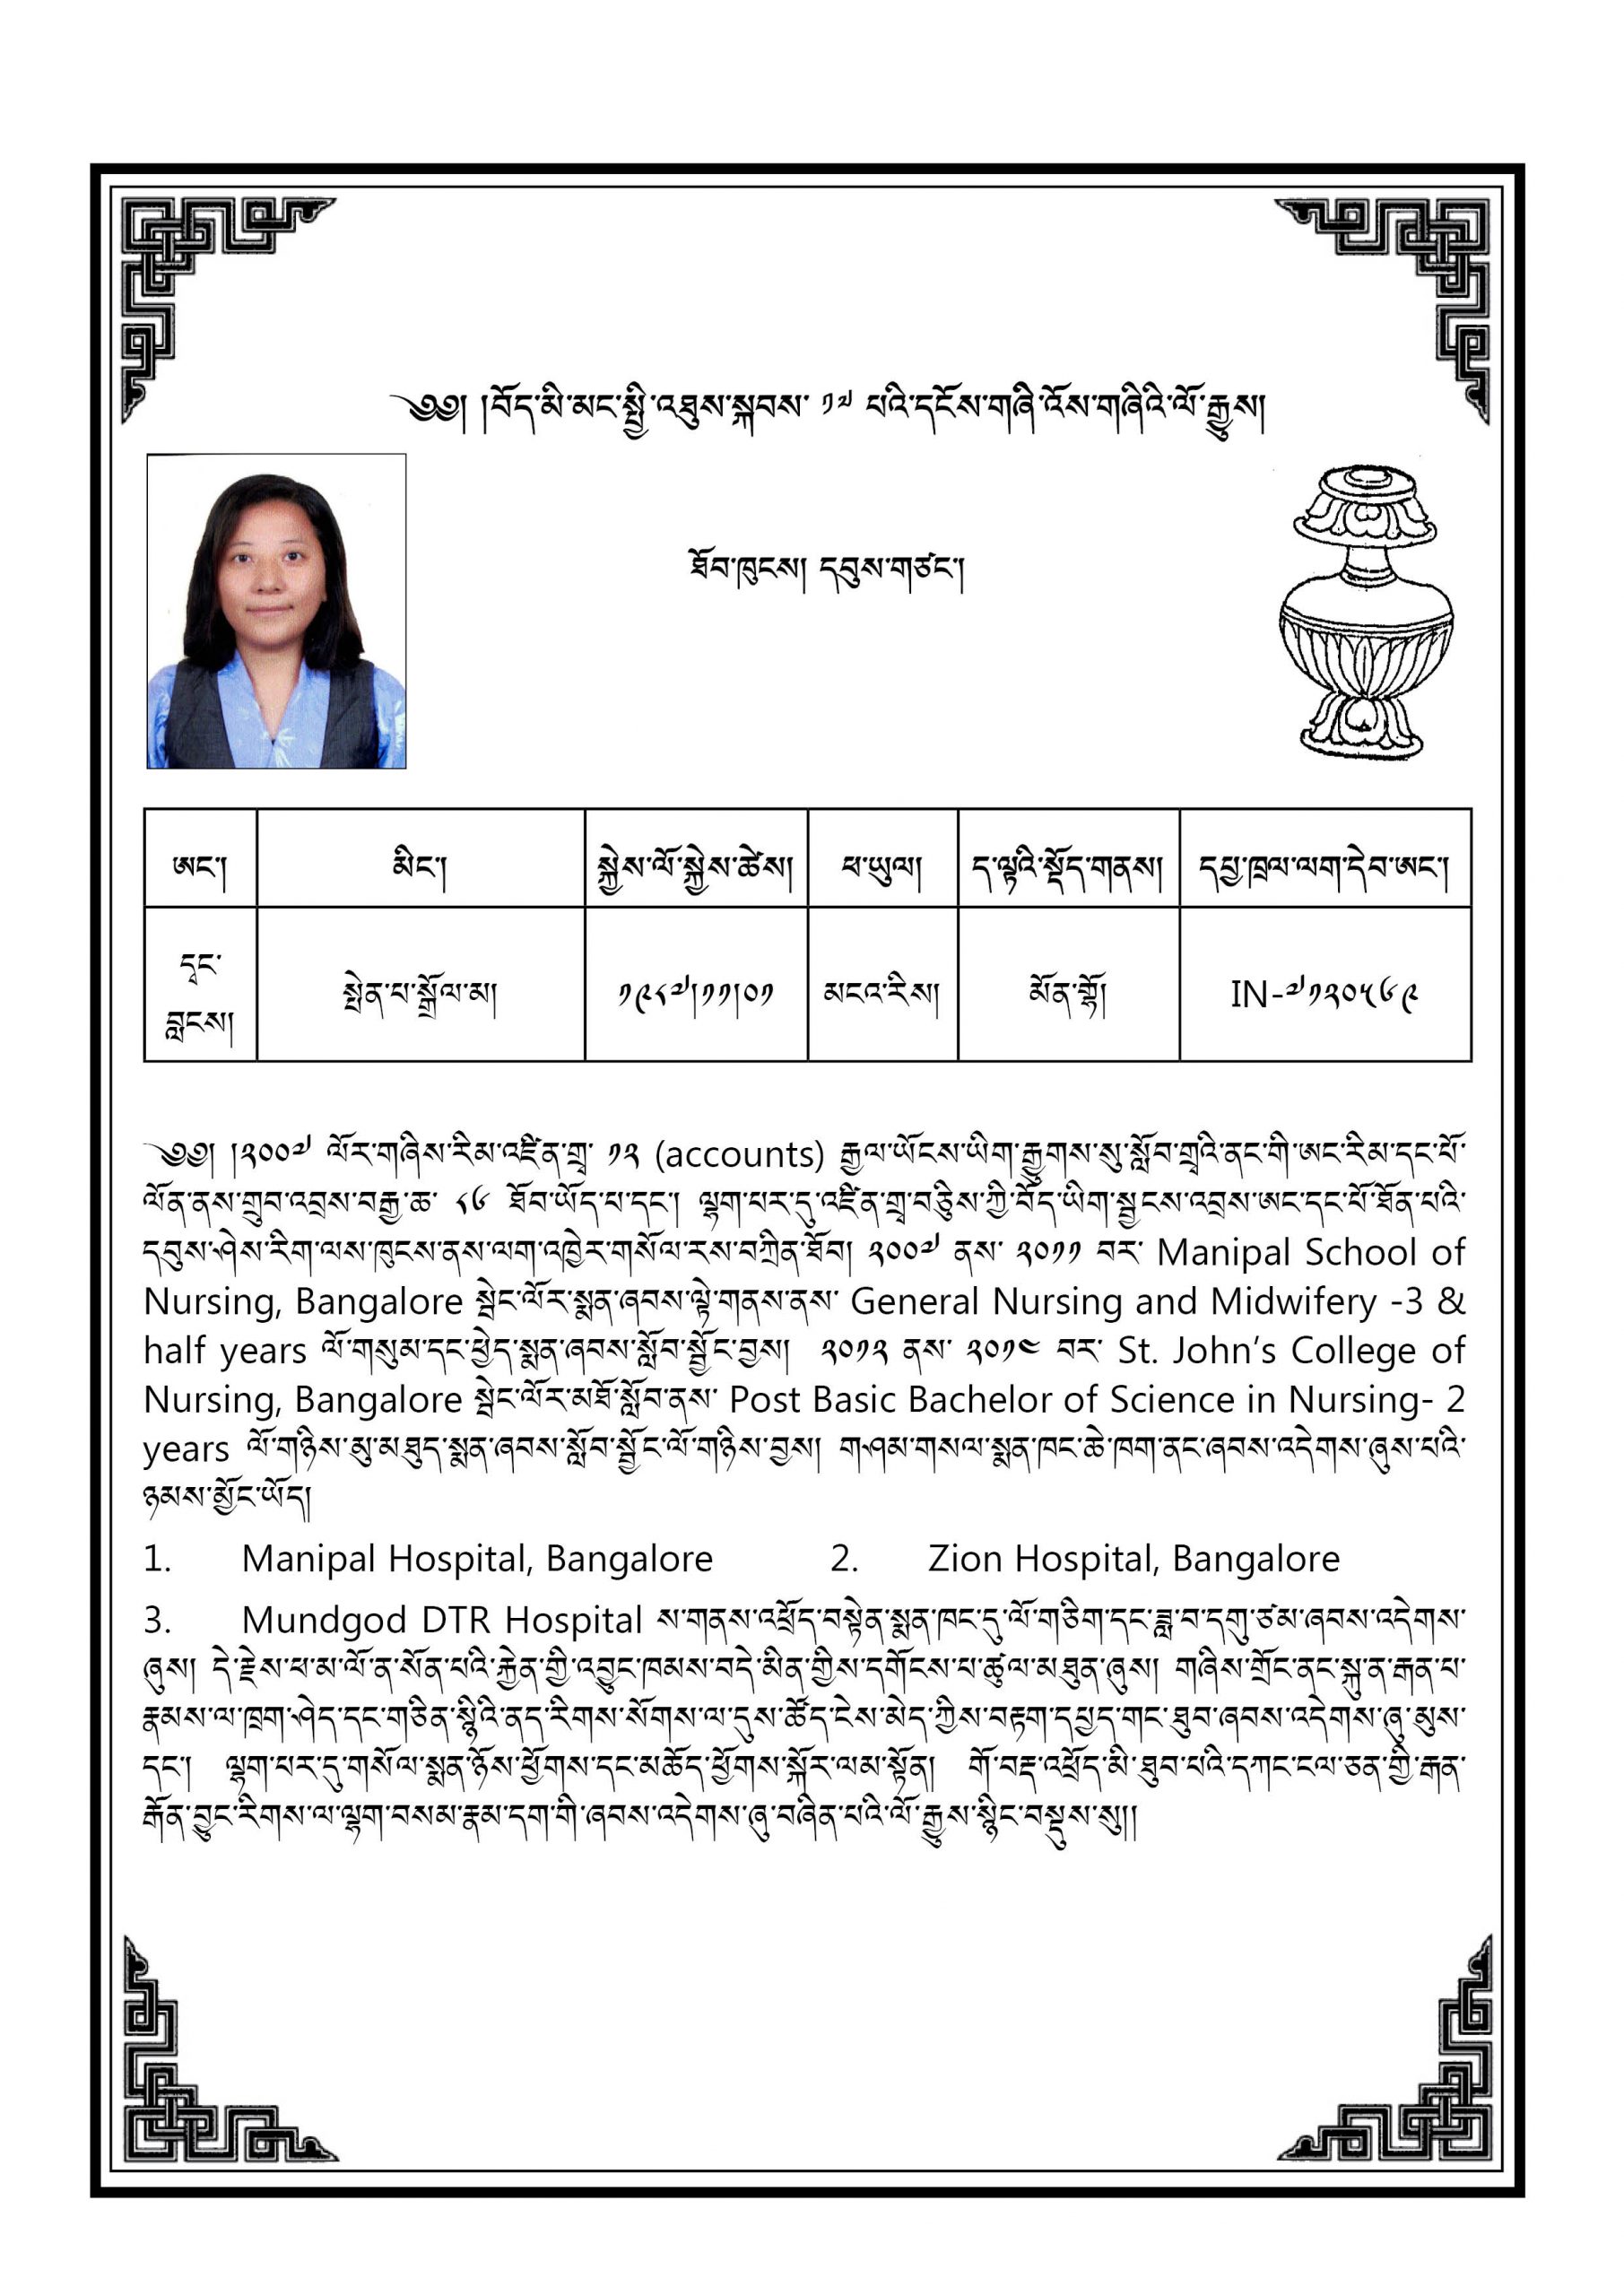 ༄༅། །བོད་མི་མང་སྤྱི་འཐུས་སྐབས་ ༡༧ པའི་དངོས་གཞི་འོས་གཞིའི་ལོ་རྒྱུས།
ཐོབ་ཁུངས། དབུས་གཙང་།
ཨང་། མིང་། སྐྱེས་ལོ་སྐྱེས་ཚེས། ཕ་ཡུལ། ད་ལྟའི་སྡོད་གནས། དཔྱ་ཁྲལ་ལག་དེབ་ཨང་།
དྭང་བླངས། སྤེན་པ་སྒྲོལ་མ། ༡༩༨༧།༡༡།༠༡ མངའ་རིས། མོན་གྷོ། IN-༧༡༢༠༥༦༩
༄༅། །༢༠༠༧ ལོར་གཞིས་རིམ་འཛིན་གྲྭ་ ༡༢ (accounts) རྒྱལ་ཡོངས་ཡིག་རྒྱུགས་སུ་སློབ་གྲྭའི་ནང་གི་ཨང་རིམ་དང་པོ་
ལོན་ནས་གྲུབ་འབྲས་བརྒྱ་ཆ་ ༨༦ ཐོབ་ཡོད་པ་དང་། ལྷག་པར་དུ་འཛིན་གྲྭ་བཅུ་གཉིས་ཀྱི་བོད་ཡིག་སྦྱངས་འབྲས་ཨང་དང་པོ་ཐོན་པའི་
དབུས་ཤེས་རིག་ལས་ཁུངས་ནས་ལག་འཁྱེར་གསོལ་རས་བཀྲིན་ཐོབ། ༢༠༠༧ ནས་ ༢༠༡༡ བར་ Manipal School of
Nursing, Bangalore སྦེང་ལོར་སྨན་ཞབས་ལྟེ་གནས་ནས་ General Nursing and Midwifery -3 &
half years ལོ་གསུམ་དང་ཕྱེད་སྨན་ཞབས་སློབ་སྦྱོང་བྱས། ༢༠༡༢ ནས་ ༢༠༡༤ བར་ St. John’s College of
Nursing, Bangalore སྦེང་ལོར་མཐོ་སློབ་ནས་ Post Basic Bachelor of Science in Nursing- 2
years ལོ་གཉིས་མུ་མཐུད་སྨན་ཞབས་སློབ་སྦྱོང་ལོ་གཉིས་བྱས། གཤམ་གསལ་སྨན་ཁང་ཆེ་ཁག་ནང་ཞབས་འདེགས་ཞུས་པའི་
ཉམས་མྱོང་ཡོད།
1. Manipal Hospital, Bangalore 2. Zion Hospital, Bangalore
3. Mundgod DTR Hospital ས་གནས་འཕྲོད་བསྟེན་སྨན་ཁང་དུ་ལོ་གཅིག་དང་ཟླ་བ་དགུ་ཙམ་ཞབས་འདེགས་
ཞུས། དེ་རྗེས་ཕ་མ་ལོ་ན་སོན་པའི་རྐྱེན་གྱི་འབྱུང་ཁམས་བདེ་མིན་གྱིས་དགོངས་པ་ཚུལ་མཐུན་ཞུས། གཞིས་གྲོང་ནང་སྐུ་ན་རྒན་པ་
རྣམས་ལ་ཁྲག་ཤེད་དང་གཅིན་སྙིའི་ནད་རིགས་སོགས་ལ་དུས་ཚོད་ངེས་མེད་ཀྱིས་བརྟག་དཔྱད་གང་ཐུབ་ཞབས་འདེགས་ཞུ་མུས་
དང་། ལྷག་པར་དུ་གསོལ་སྨན་ཉོས་ཕྱོགས་དང་མཆོད་ཕྱོགས་སྐོར་ལམ་སྟོན། གོ་བརྡ་འཕྲོད་མི་ཐུབ་པའི་དཀང་ངལ་ཅན་གྱི་རྒན་
རྒོན་བྱུང་རིགས་ལ་ལྷག་བསམ་རྣམ་དག་གི་ཞབས་འདེགས་ཞུ་བཞིན་པའི་ལོ་རྒྱུས་སྙིང་བསྡུས་སུ།།